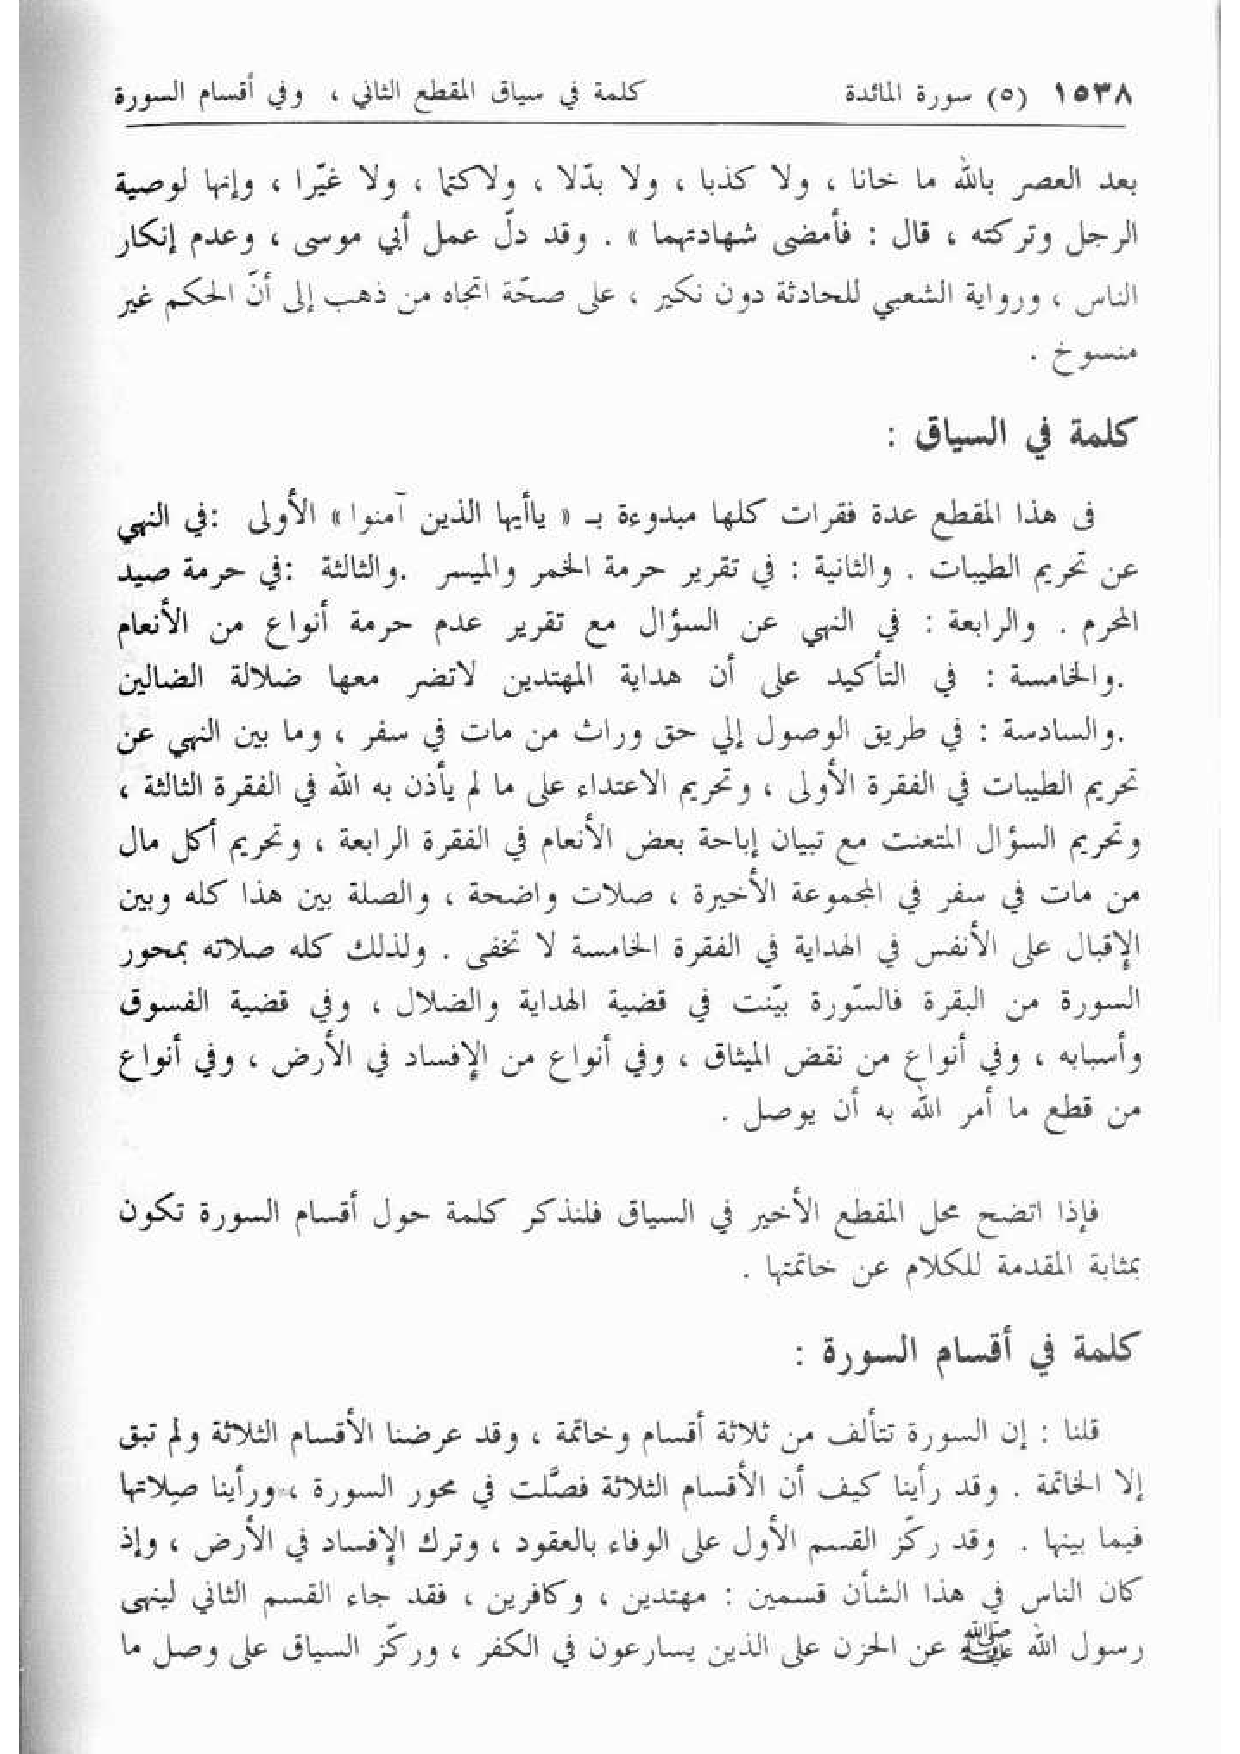 ١٥٣٨ (٥) سورة المائدة كلمة في سياق المقطع الثاني ، وفي أقسام السورة
بعد العصر بالله ما خانا ، ولا كذبا ، ولا بدّلا ، ولاكتما ، ولا غيّرا ، وإنها لوصية
الرجل وتركته ، قال : فأمضى شهادتهما » . وقد دلّ عمل أبي موسى ، وعدم إنكار
الناس ، ورواية الشعبي للحادثة دون نكير ، على صحّة اتجاه من ذهب إلى أنّ الحكم غير
منسوخ .
كلمة في السياق :
فى هذا المقطع عدة فقرات كلها مبدوءة بـ « ياأيها الذين آمنوا » الأولى :في النهي
عن تحريم الطيبات . والثانية : في تقرير حرمة الخمر والميسر .والثالثة :في حرمة صيد
المحرم . والرابعة : في النهي عن السؤال مع تقرير عدم حرمة أنواع من الأنعام
.والخامسة : في التأكيد على أن هداية المهتدين لاتضر معها ضلالة الضالين
.والسادسة : في طريق الوصول إلي حق وراث من مات في سفر ، وما بين النهي عن
تحريم الطيبات في الفقرة الأولى ، وتحريم الاعتداء على ما لم يأذن به الله في الفقرة الثالثة ،
وتحريم السؤال المتعنت مع تبيان إباحة بعض الأنعام في الفقرة الرابعة ، وتحريم أكل مال
من مات في سفر في المجموعة الأخيرة ، صلات واضحة ، والصلة بين هذا كله وبين
الإقبال على الأنفس في الهداية في الفقرة الخامسة لا تخفى . ولذلك كله صلاته بمحور
السورة من البقرة فالسّورة بيّنت في قضية الهداية والضلال ، وفي قضية الفسوق
وأسبابه ، وفي أنواع من نقض الميثاق ، وفي أنواع من الإفساد في الأرض ، وفي أنواع
من قطع ما أمر الله به أن يوصل .
فإذا اتضح محل المقطع الأخير في السياق فلنذكر كلمة حول أقسام السورة تكون
بمثابة المقدمة للكلام عن خاتمتها .
كلمة في أقسام السورة :
قلنا : إن السورة تتألف من ثلاثة أقسام وخاتمة ، وقد عرضنا الأقسام الثلاثة ولم تبق
إلا الخاتمة . وقد رأينا كيف أن الأقسام الثلاثة فصَّلت في محور السورة ، ورأينا صِلاتها
فيما بينها . وقد ركّز القسم الأول على الوفاء بالعقود ، وترك الإفساد في الأرض ، وإذ
كان الناس في هذا الشأن قسمين : مهتدين ، وكافرين ، فقد جاء القسم الثاني لينهى
رسول الله ﷺ عن الحزن على الذين يسارعون في الكفر ، وركّز السياق على وصل ما